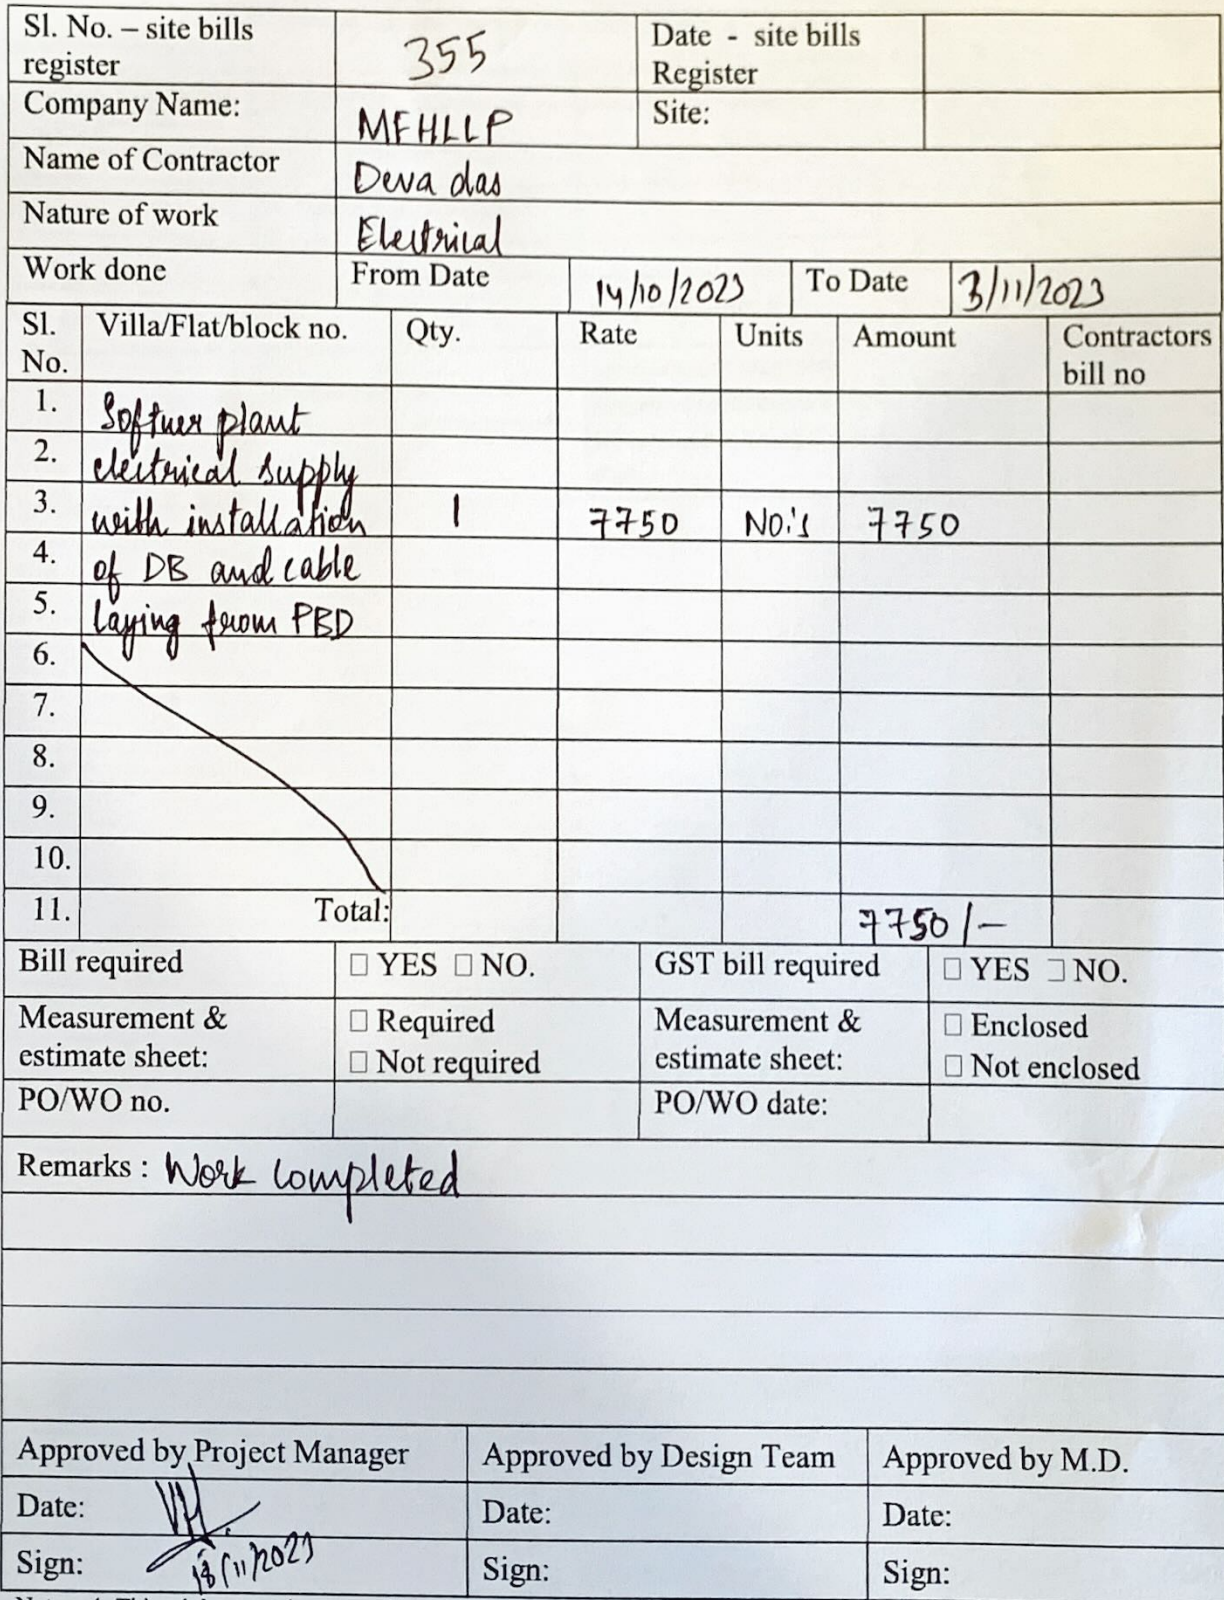 Sl. No. – site bills register 355 Date - site bills Register
Company Name: MFHLLP Site:
Name of Contractor Deva das
Nature of work Electrical
Work done From Date 14/10/2023 To Date 3/11/2023
Sl. No. Villa/Flat/block no. Qty. Rate Units Amount Contractors bill no
1. Softner plant
2. electrical supply
3. with installation 1 7750 NO.'s 7750
4. of DB and cable
5. laying from PBD
6.
7.
8.
9.
10.
11. Total: 7750/-
Bill required ☐ YES ☐ NO. GST bill required ☐ YES ☐ NO.
Measurement & estimate sheet: ☐ Required ☐ Not required Measurement & estimate sheet: ☐ Enclosed ☐ Not enclosed
PO/WO no. PO/WO date:
Remarks : Work completed
Approved by Project Manager Approved by Design Team Approved by M.D.
Date: Date: Date:
Sign: 18/11/2023 Sign: Sign: